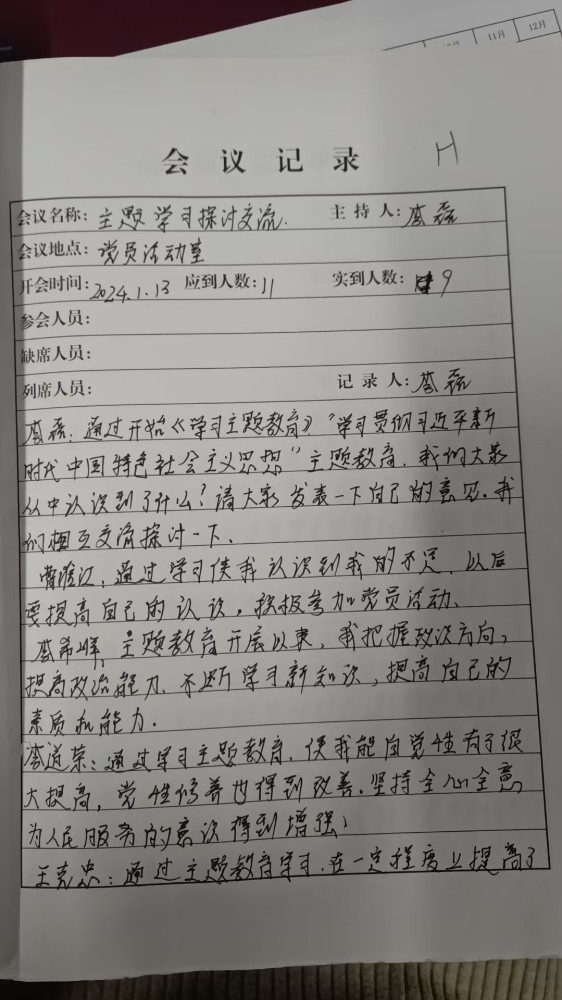 11月 12月
会议记录 H
会议名称: 主题学习探讨交流. 主持人: 李磊
会议地点: 党员活动室
开会时间: 2024.1.13 应到人数: 11 实到人数: 9
参会人员:
缺席人员:
列席人员: 记录人: 李磊
李磊: 通过开始《学习主题教育》"学习贯彻习近平新
时代中国特色社会主义思想"主题教育, 我们大家
从中认识到了什么? 请大家发表一下自己的意见. 我
们相互交流探讨一下.
曹 江, 通过学习使我认识到我的不足, 以后
要提高自己的认识, 积极参加党员活动.
李希 , 主题教育开展以来, 我把握政治方向,
提高政治能力, 不断学习新知识, 提高自己的
素质和能力.
李道荣: 通过学习主题教育, 使我能自党性有了很
大提高, 党性修养也得到改善. 坚持全心全意
为人民服务的意识得到增强,
王克忠: 通过主题教育学习, 在一定程度上提高了